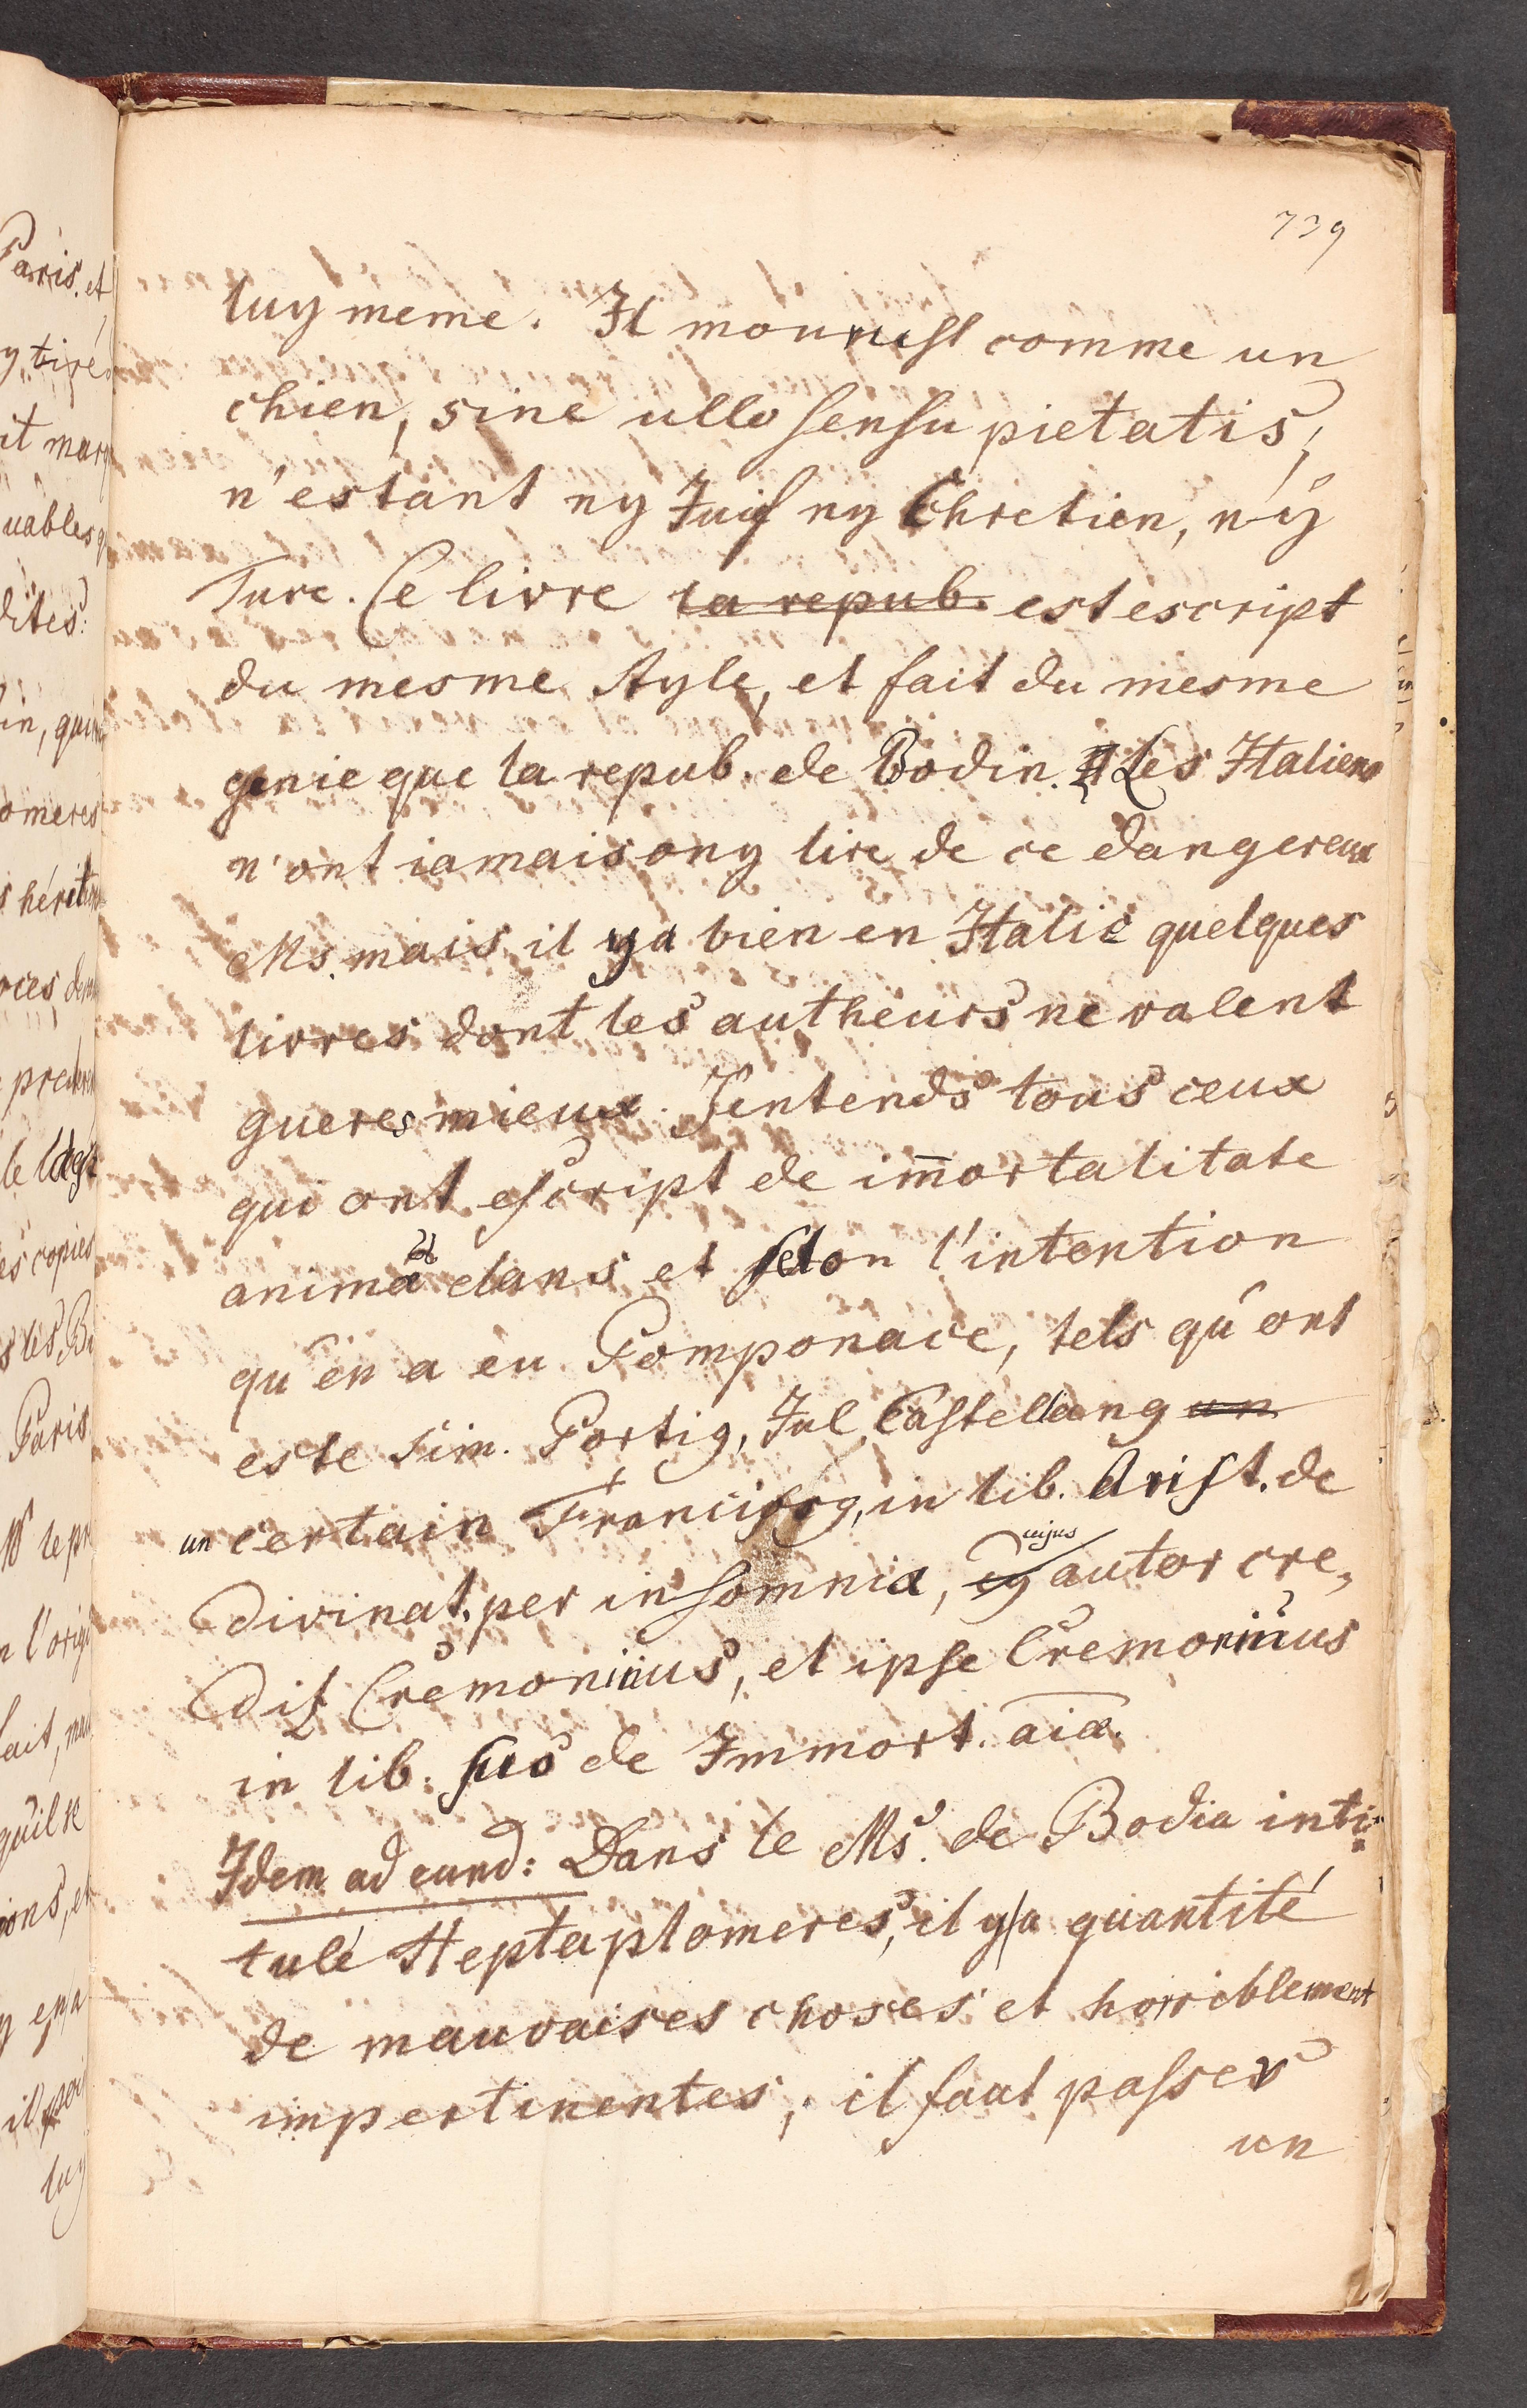 739
luy meme. Il mourust comme un
chien, sine ullo sensu pietatis,
n'estant ny Juif ny Chretien, ny
Turc. Ce livre la repub. est escript
du mesme style, et fait du mesme
genie que la repub. de Bodin. Les Italiens
n'ont iamais ouy lire de ce dangereux
Ms. mais il y a bien en Italie quelques
livres dont les autheurs ne valent
gueres mieux. J'entends tous ceux
qui ont escript de im̄ortalitate
animæ dans et selon l'intention
qu'en a eu Pomponace, tels qu'ont
esté Sim. Portig, Jul. Castellang un
un certain Franciscg, in lib. Arist. de
cujus
divinat. per insomnia, cg autor cre,
dit Cremoninus, et ipse Cremoninus
in lib. suo de Immort. aiæ.
Idem ad eund: Dans le Ms. de Bodin inti-
tulé Heptaplomeres, il y a quantité
de mauvaises choses et horriblement
impertinentes, il faut passer
un